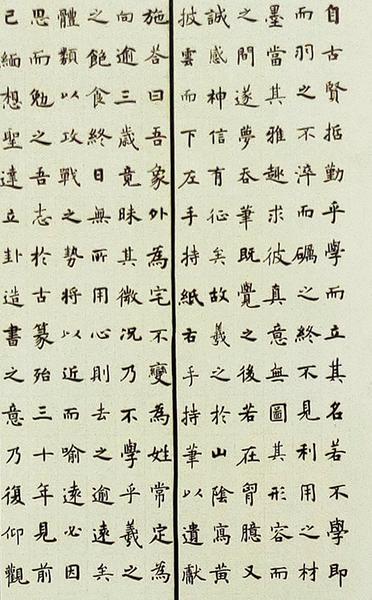 自古賢哲勤乎學而立其名若不學即
而羽之不淬而礪之終不見利用之材
墨當其雅趣求彼真意無圖其形容而
之間遂夢吞筆既覺之後若在胷臆又
誠感神信有征矣故羲之於山陰寫黃
披雲而下左手持紙右手持筆以遺獻
施荅曰吾象外為宅不變為姓常定為
向逾三歲竟昧其微況乃不學乎羲之
之飽食終日無所用心則去之逾遠矣
體類以攻戰之勢將以近而喻遠必因
思而勉之吾志於古篆殆三十年見前
己緬想聖達立卦造書之意乃復仰觀